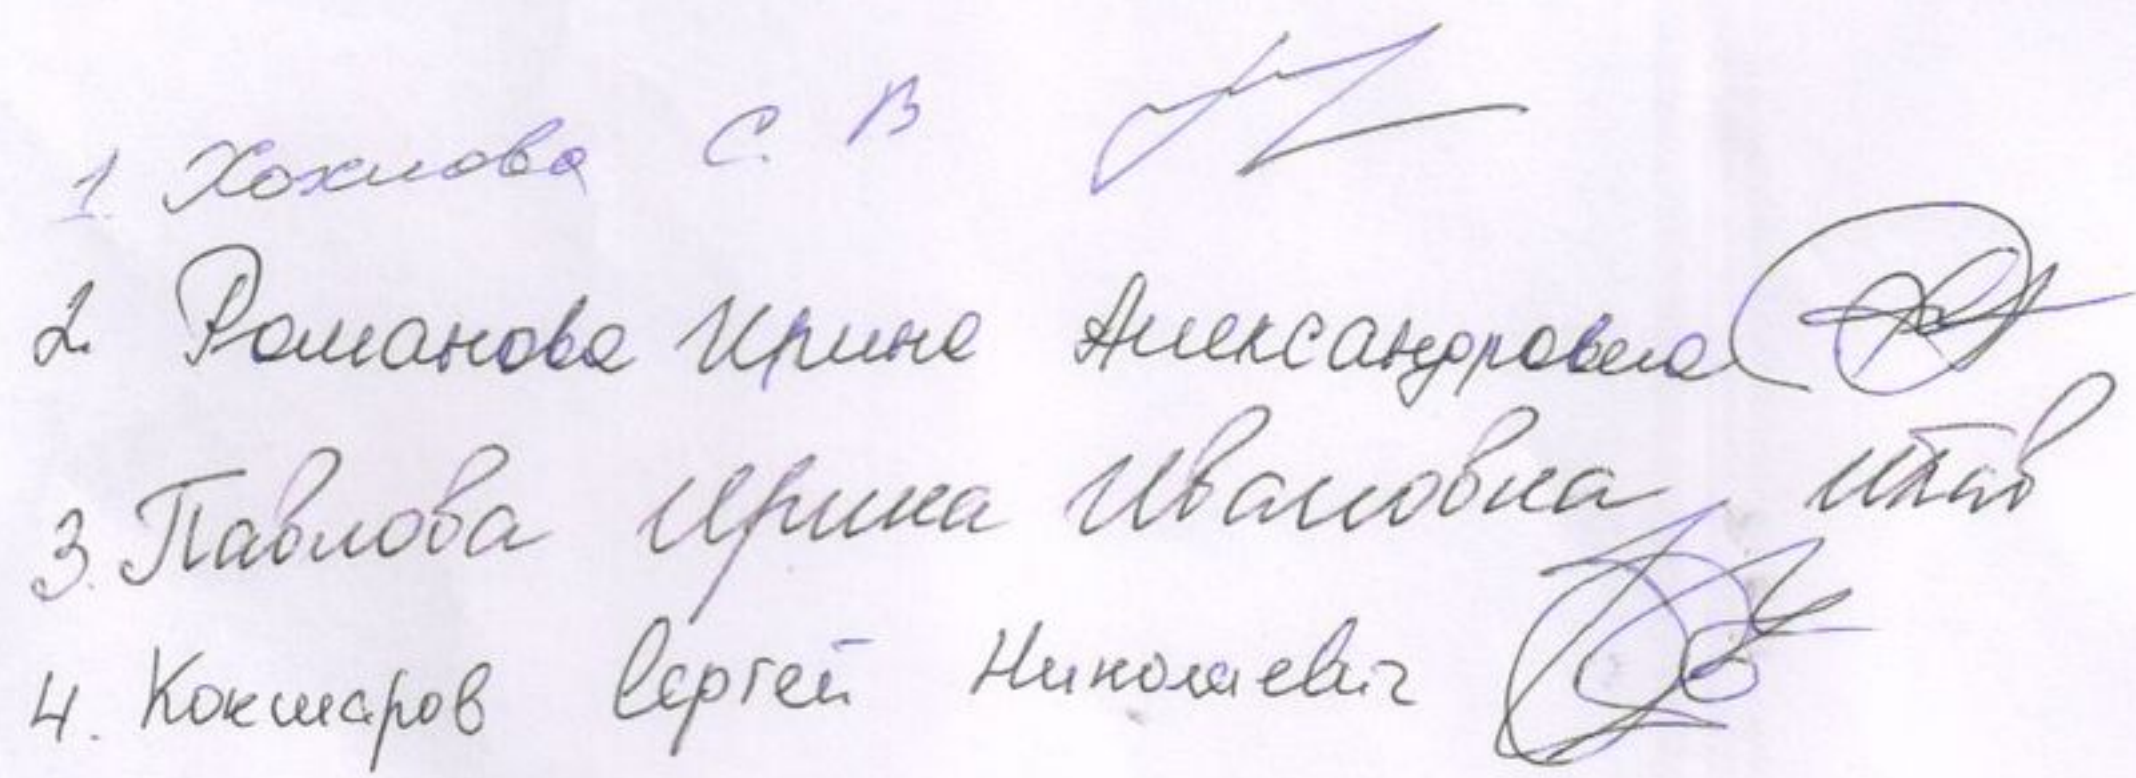 1. Хохлова С. В
2. Романова Ирина Александровна
3. Павлова Ирина Ивановна
4. Кокшаров Сергей Николаевич